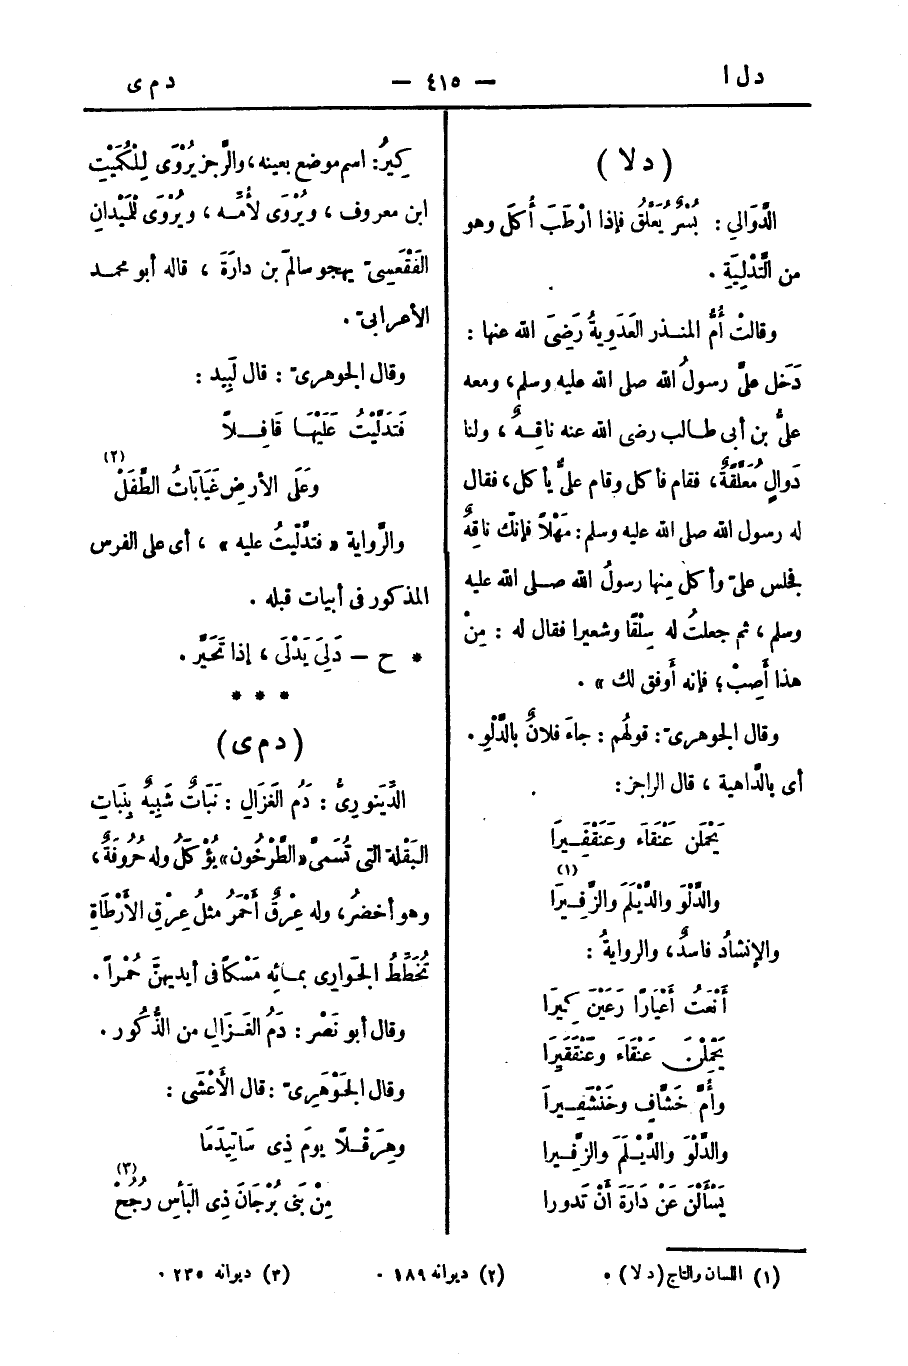 د ل ا
— ٤١٥ —
د م ى
( دلا )
الدَّوَالِى : بُسْرٌ يُعَلَّقُ فإذا ارْطَبَ أُكِلَ وهو
من التَّدْلِيَةِ .
وقالتْ أُمُّ المنـذر العَدَوِيةُ رَضِىَ الله عنها :
دَخَل علىَّ رسولُ الله صلى الله عليه وسلم، ومعه
علىُّ بن أبى طالب رضى الله عنه ناقِـهٌ ، ولنا
دَوالٍ مُعَلَّقَةٌ، فقام فأكل وقام علىٌّ يأكل، فقال
له رسول الله صلى الله عليه وسلم: مَهْلاً فإنّك ناقِهٌ
فجلس علىّ وأكل مِنها رسولُ الله صـلى الله عليه
وسلم ، ثم جعلتُ له سِلْقًا وشعيرا فقال له : مِنْ
هذا أَصِبْ؛ فإنه أوفق لك » .
وقال الجوهرىّ: قولهُم : جاءَ فلانٌ بالدَّلْوِ .
أى بالدَّاهية ، قال الراجز:
يَحْمِلْن عَنْقَاءَ وعَنْقَفِـيرَا
والدَّلْوَ والدَّيْلَمَ والزَّفِـيرَا (١)
والإنشادُ فاسدٌ، والروايةُ :
أَنْعَتُ أَعْيَارًا رَعَيْنَ كِيرَا
يَحْمِلْنَ عَنْقَاءَ وعَنْقَفِيرَا
وأُمَّ خَشَّافٍ وخَنْشَفِـيرَا
والدَّلْوَ والدَّيْـلَمَ والزَّفِـيرا
يَسْأَلْنَ عَنْ دَارَةَ أَنْ تَدورا
كِيرُ: اسم موضع بعينه ، والرَّجز يُرْوَى لِلْكُمَيْتِ
ابن معروف ، ويُرْوَى لأُمِّـه ، ويُرْوَى لِلْمَيْدانِ
الفَقْعَسِىّ يهجو سالمَ بن دارَةَ ، قاله أبو محمـد
الأعرابىّ .
وقال الجوهرىّ : قال لَبِيد :
فَتَدَلَّيْتُ عَلَيْهَـا قَافِــلاً
وَعَلَى الأرضِ غَيَابَاتُ الطَّفَلْ (٢)
والرِّواية « فتدَّلَّيتُ عليه » ، أى على الفرس
المذكور فى أبيات قبله .
* ح — دَلِىَ يَدْلَى ، إذا تَحَيَّر .
* * *
( د م ى )
الدِّينَورِىُّ : دَمُ الغَزَالِ : نَبَاتٌ شَبِيهٌ بِنَبَاتِ
البَقْلة التى تُسَمىَّ «الطَّرْخُون» يُؤْكَلُ وله حُرُوفَةٌ ،
وهو أخضرُ، وله عِرْقٌ أَحْمَرُ مثلُ عِرْقِ الأَرْطَاةِ
تُخَطِّطُ الجَوارى بمـائِه مَسْكًا فى أيديهنَّ حُمْراً .
وقال أبو نَصْر : دَمُ الغَـزَالِ من الذُّكُور .
وقال الجَوْهَرِىّ : قال الأَعْشَى :
وهِرَقْـلاً يومَ ذِى سَاتِيدَمَا
مِنْ بَنِى بُرْجَانَ ذِى البَأْسِ رُجُحْ (٣)
(١) اللسان والتاج (دلا) .
(٢) ديوانه ١٨٩ .
(٣) ديوانه ٢٣٥ .